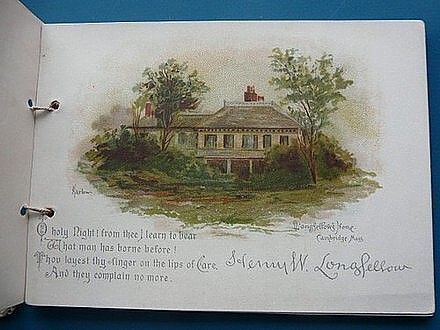 Longfellow's Home
Cambridge Mass.
O holy Night! from thee I learn to bear
What man has borne before!
Thou layest thy finger on the lips of Care,
And they complain no more.
Henry W. Longfellow